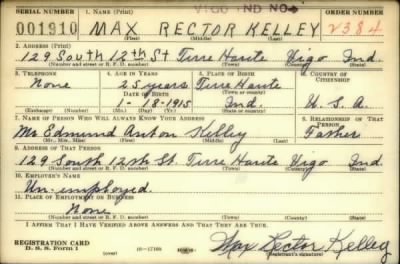 VIGO IND NO→
SERIAL NUMBER 1. NAME (Print) ORDER NUMBER
001910 MAX RECTOR KELLEY 2384
(First) (Middle) (Last)
2. ADDRESS (Print)
129 South 12th St Terre Haute Vigo Ind.
(Number and street or R. F. D. number) (Town) (County) (State)
3. TELEPHONE 4. AGE IN YEARS 5. PLACE OF BIRTH 6. COUNTRY OF CITIZENSHIP
None 25 years Terre Haute
DATE OF BIRTH (Town or county)
1-18-1915 Ind. U.S.A.
(Exchange) (Number) (Mo.) (Day) (Yr.) (State or country)
7. NAME OF PERSON WHO WILL ALWAYS KNOW YOUR ADDRESS 8. RELATIONSHIP OF THAT PERSON
Mr Edmund Anton Kelley Father
(Mr., Mrs., Miss) (First) (Middle) (Last)
9. ADDRESS OF THAT PERSON
129 South 12th St. Terre Haute Vigo Ind.
(Number and street or R. F. D. number) (Town) (County) (State)
10. EMPLOYER'S NAME
Un-employed.
11. PLACE OF EMPLOYMENT OR BUSINESS
None
(Number and street or R. F. D. number) (Town) (County) (State)
I AFFIRM THAT I HAVE VERIFIED ABOVE ANSWERS AND THAT THEY ARE TRUE.
REGISTRATION CARD
D. S. S. Form 1 (over) 16—17105 Max Rector Kelley
(Registrant's signature)